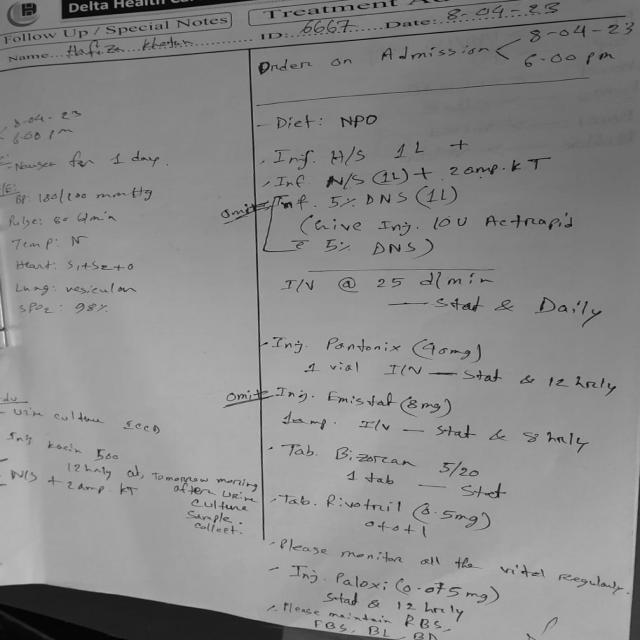 Delta Health
Follow Up / Special Notes
Treatment
ID: 6667 Date: 8-04-23
Name Hafiza Khatun
8-04-23
6.00 pm
Nausea for 1 day.
BP: 180/100 mmHg
Pulse: 80 b/min
Temp: N
Heart: S1+S2+0
Lung: vesicular
SPO2: 98%
Urine culture
Inj
500
12 hrly
Tomorrow morning
after urine
culture
sample
collect.
N/S + 2 amp KT
Order on Admission < 8-04-23
6.00 pm
- Diet: NPO
. Inf. H/S 1L +
. Inf. N/S (1L) + 2 amp. KT
omit Inf. 5% DNS (1L)
(Give Inj. 10U Actrapid
c̄ 5% DNS)
I/V @ 25 d/min
— Stat & Daily
. Inj. Pantonix (40mg)
1 vial I/V — Stat & 12 hrly
omit Inj. Emistat (8mg)
1 amp. I/V — Stat & 8 hrly
. Tab. Bizoran 5/20
1 tab — Stat
. Tab. Rivotril (0.5mg)
0+0+1
. Please monitor all the vital regularly.
- Inj. Paloxi (0.075mg)
Stat & 12 hrly
. Please maintain RBS.
FBS, BL, BD